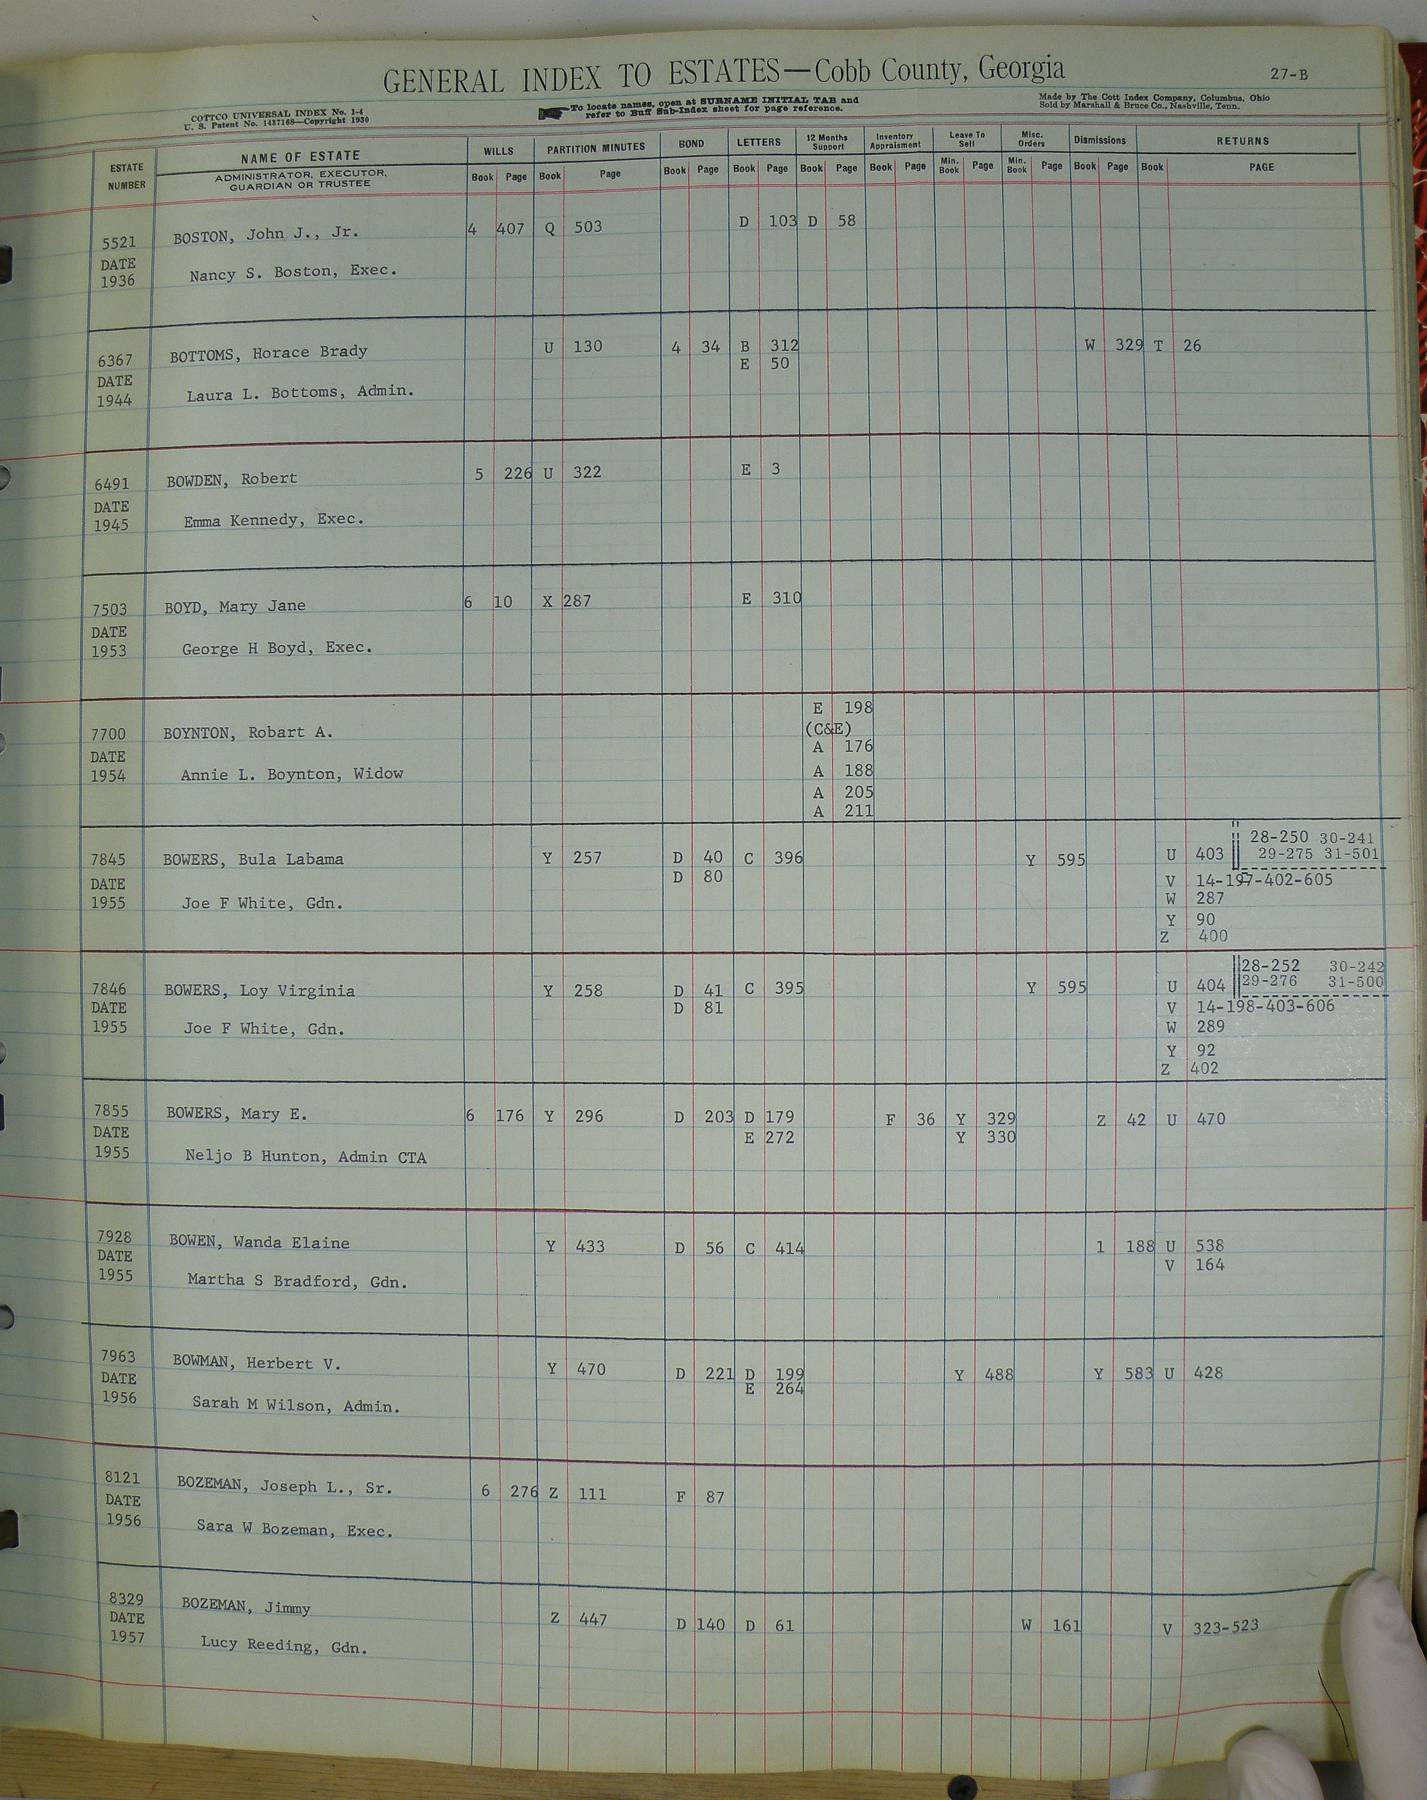 GENERAL INDEX TO ESTATES—Cobb County, Georgia
27-B
COTTCO UNIVERSAL INDEX No. 1-4
U. S. Patent No. 1437168—Copyright 1930
To locate names, open at SURNAME INITIAL TAB and
refer to Buff Sub-Index sheet for page reference.
Made by The Cott Index Company, Columbus, Ohio
Sold by Marshall & Bruce Co., Nashville, Tenn.
ESTATE NUMBER NAME OF ESTATE WILLS PARTITION MINUTES BOND LETTERS 12 Months Support Inventory Appraisment Leave To Sell Misc. Orders Dismissions RETURNS
ADMINISTRATOR, EXECUTOR, GUARDIAN OR TRUSTEE Book Page Book Page Book Page Book Page Book Page Book Page Min. Book Page Min. Book Page Book Page Book PAGE
5521 BOSTON, John J., Jr. 4 407 Q 503 D 103 D 58
DATE
1936 Nancy S. Boston, Exec.
6367 BOTTOMS, Horace Brady U 130 4 34 B 312 W 329 T 26
E 50
DATE
1944 Laura L. Bottoms, Admin.
6491 BOWDEN, Robert 5 226 U 322 E 3
DATE
1945 Emma Kennedy, Exec.
7503 BOYD, Mary Jane 6 10 X 287 E 310
DATE
1953 George H Boyd, Exec.
E 198
7700 BOYNTON, Robart A. (C&E)
DATE A 176
1954 Annie L. Boynton, Widow A 188
A 205
A 211
28-250 30-241
7845 BOWERS, Bula Labama Y 257 D 40 C 396 Y 595 U 403 29-275 31-501
DATE D 80 V 14-197-402-605
1955 Joe F White, Gdn. W 287
Y 90
Z 400
28-252 30-242
7846 BOWERS, Loy Virginia Y 258 D 41 C 395 Y 595 U 404 29-276 31-500
DATE D 81 V 14-198-403-606
1955 Joe F White, Gdn. W 289
Y 92
Z 402
7855 BOWERS, Mary E. 6 176 Y 296 D 203 D 179 F 36 Y 329 Z 42 U 470
DATE E 272 Y 330
1955 Neljo B Hunton, Admin CTA
7928 BOWEN, Wanda Elaine Y 433 D 56 C 414 1 188 U 538
DATE V 164
1955 Martha S Bradford, Gdn.
7963 BOWMAN, Herbert V. Y 470 D 221 D 199 Y 488 Y 583 U 428
DATE E 264
1956 Sarah M Wilson, Admin.
8121 BOZEMAN, Joseph L., Sr. 6 276 Z 111 F 87
DATE
1956 Sara W Bozeman, Exec.
8329 BOZEMAN, Jimmy Z 447 D 140 D 61 W 161 V 323-523
DATE
1957 Lucy Reeding, Gdn.